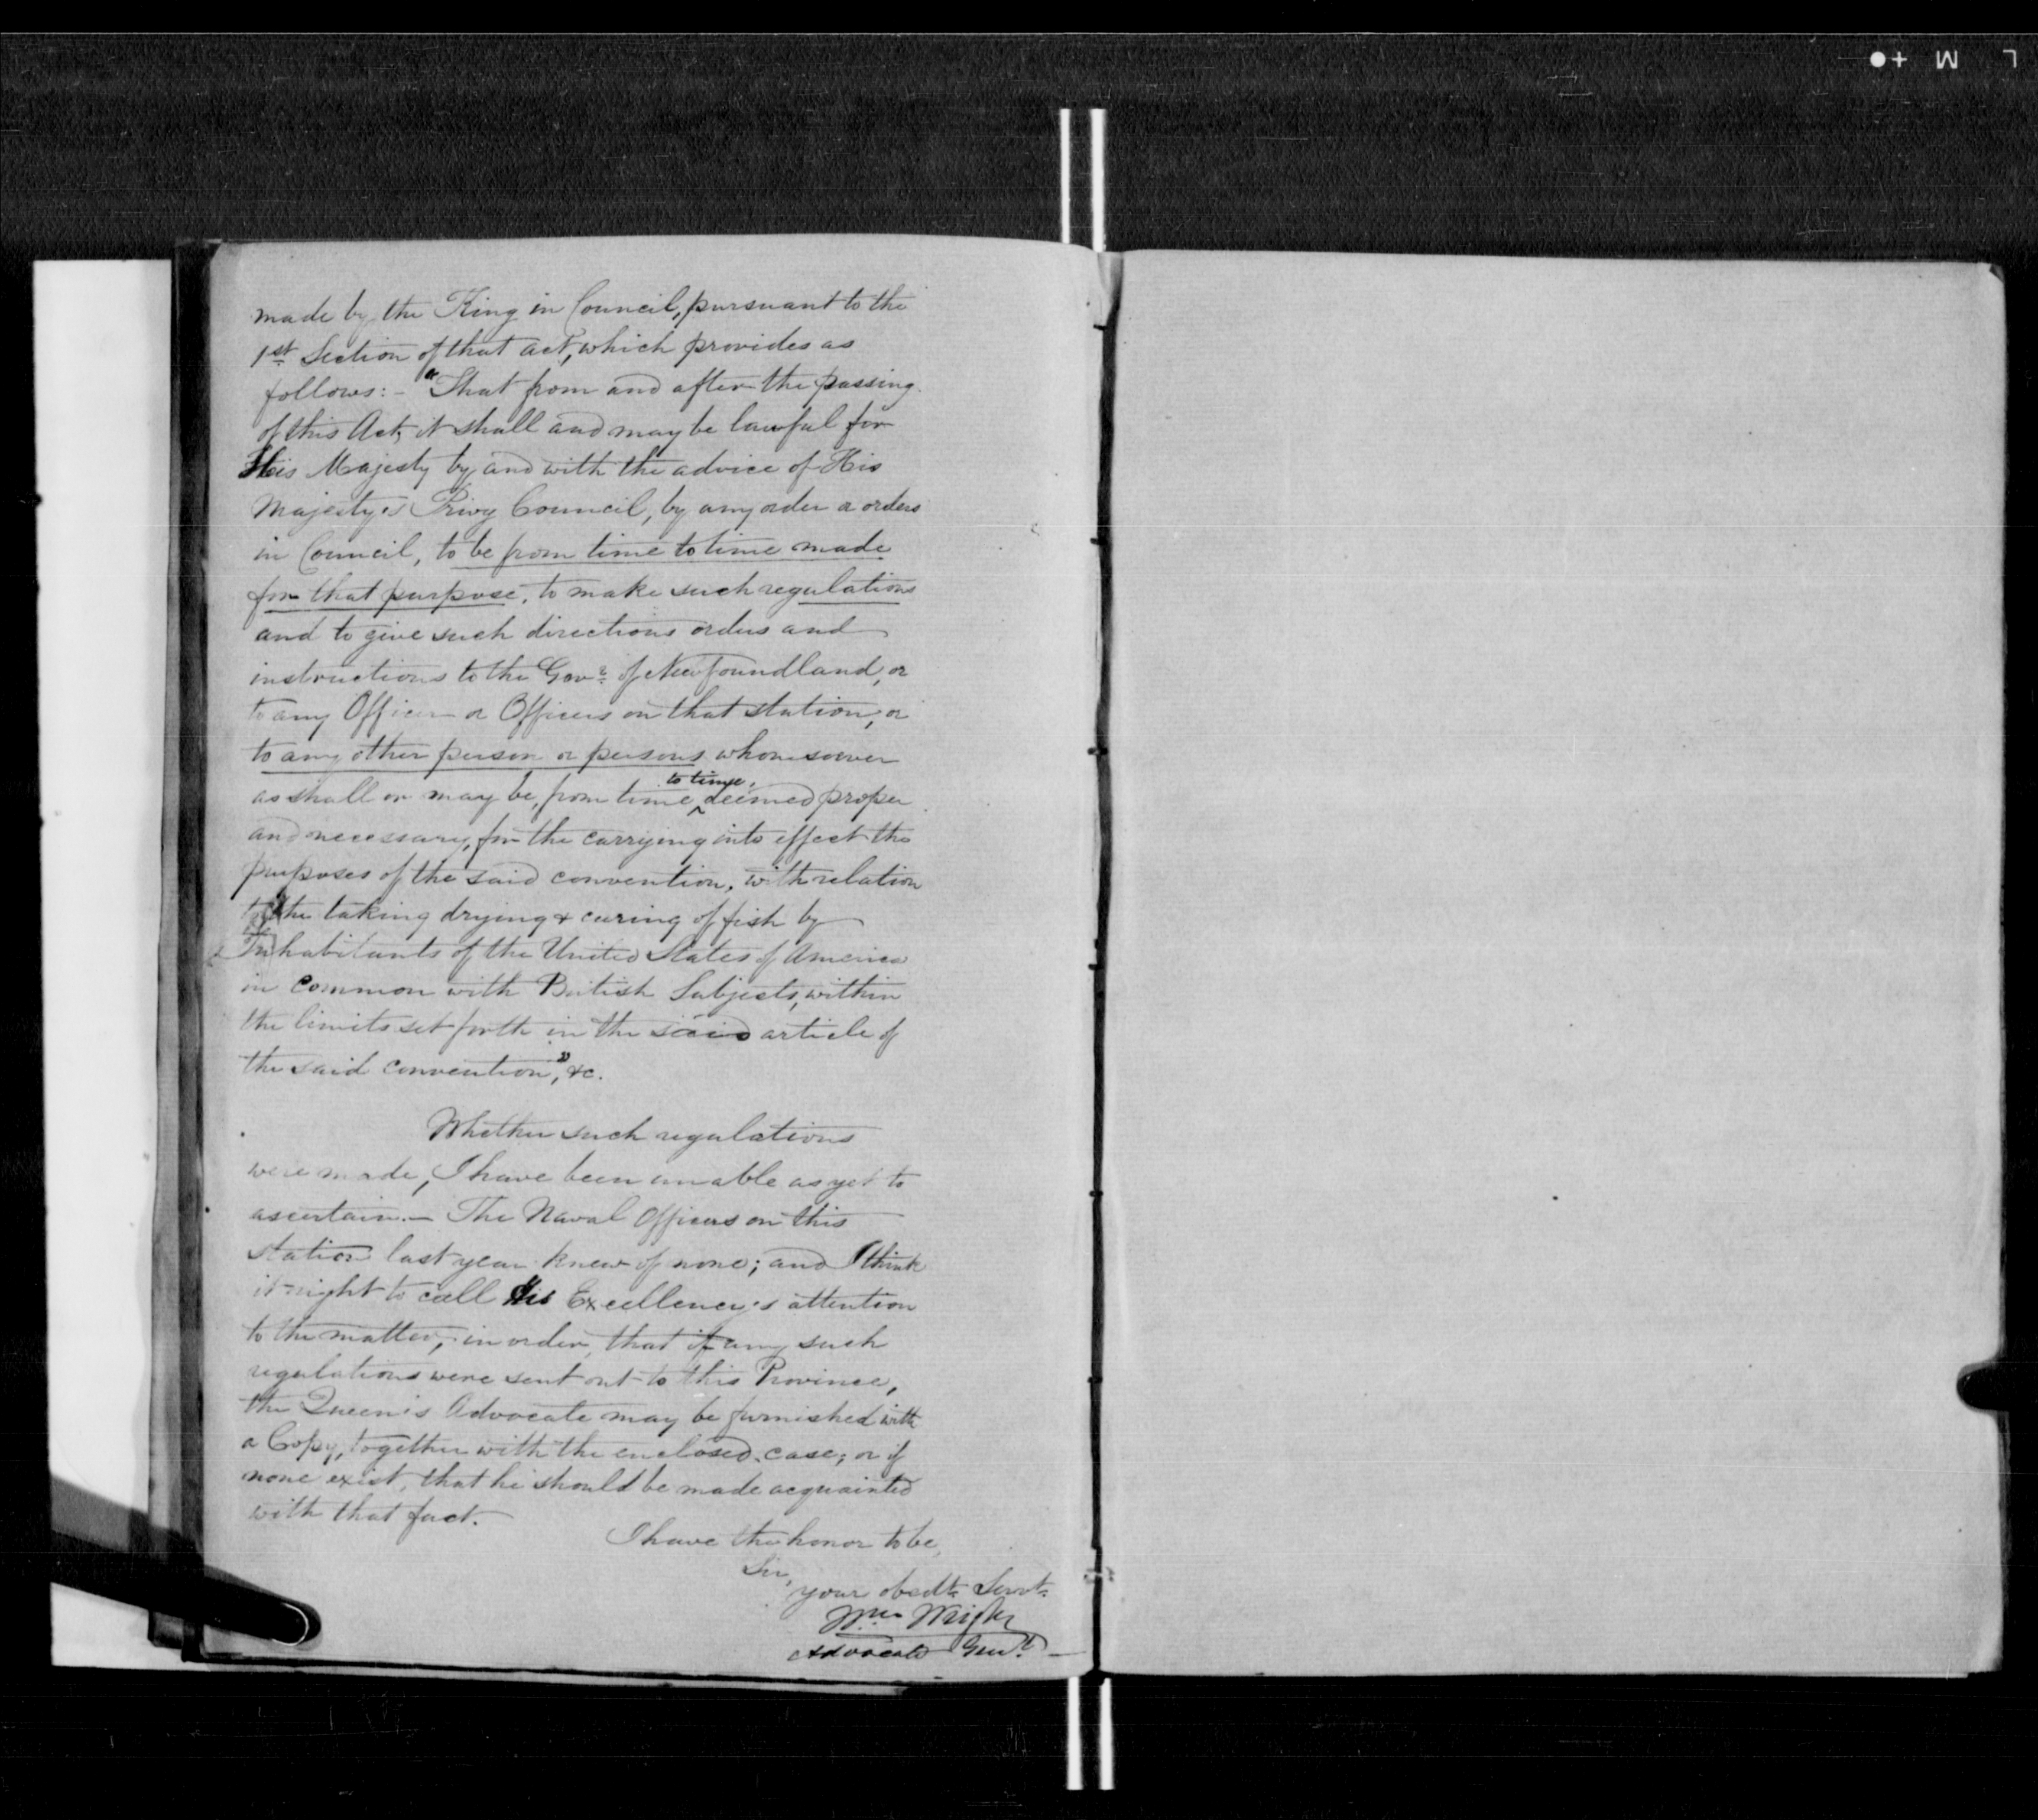 made by the King in Council, pursuant to the
1st Section of that act, which provides as
follows:- "That from and after the passing
of this Act, it shall and may be lawful for
His Majesty by and with the advice of His
Majesty's Privy Council, by any order or orders
in Council, to be from time to time made
for that purpose, to make such regulations
and to give such directions orders and
instructions to the Govr. of Newfoundland, or
to any Officer or Officers on that station, or
to any other person or persons whomsoever
as shall or may be, from time to time, deemed proper
and necessary, for the carrying into effect the
purposes of the said convention, with relation
to the taking drying & curing of fish by
Inhabitants of the United States of America
in Common with British Subjects, within
the limits set forth in the said article of
the said convention," &c.
Whether such regulations
were made, I have been unable as yet to
ascertain.— The Naval Officers on this
station last year knew of none; and I think
it right to call His Excellency's attention
to the matter, in order, that if any such
regulations were sent out to this Province,
the Queen's Advocate may be furnished with
a Copy, together with the enclosed case; or if
none exist, that he should be made acquainted
with that fact.
I have the honor to be,
Sir,
your obedt. Servt.
Wm. Wright
Advocate Genl.
L M +●